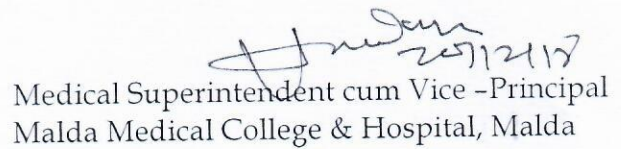 20/12/18
Medical Superintendent cum Vice –Principal
Malda Medical College & Hospital, Malda